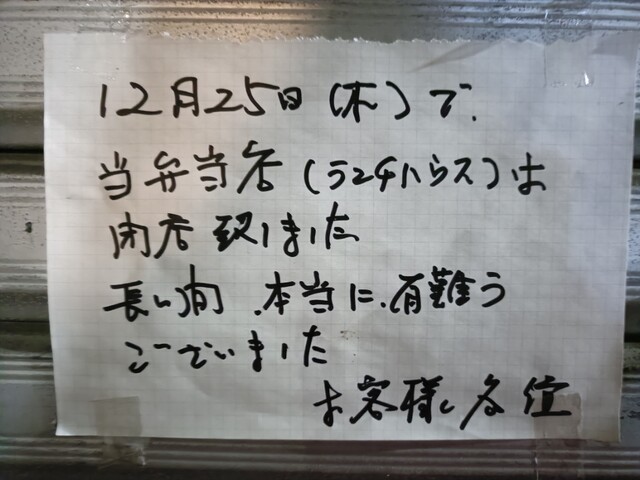 12月25日(木)で、
当弁当店(ランチハウス)は
閉店致しました
長い間、本当に、有難う
ございました
お客様各位